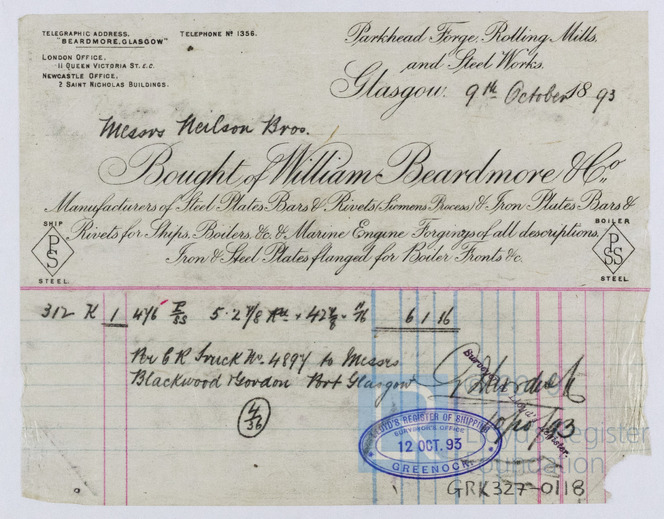 TELEGRAPHIC ADDRESS, "BEARDMORE, GLASGOW"
TELEPHONE No 1356.
LONDON OFFICE,
11 QUEEN VICTORIA ST. E.C.
NEWCASTLE OFFICE,
2 SAINT NICHOLAS BUILDINGS.
Parkhead Forge, Rolling Mills,
and Steel Works.
Glasgow. 9th October 1893
Messrs Neilson Bros.
Bought of William Beardmore & Co,
Manufacturers of Steel Plates Bars & Rivets (Siemens Process) & Iron Plates Bars &
Rivets for Ships, Boilers, &c. & Marine Engine Forgings of all descriptions,
Iron & Steel Plates flanged for Boiler Fronts &c.
SHIP
PSS
STEEL.
BOILER
PSS
STEEL.
312 K 1 476 P/SS 5.2 7/8 6 1 16
Per C R Truck No. 4897 to Messrs
Blackwood & Gordon Port Glasgow
4/36
10/10/93
LLOYD'S REGISTER OF SHIPPING
SURVEYOR'S OFFICE
12 OCT. 93
GREENOCK
Lloyd's Register
Foundation
GRK327-0118